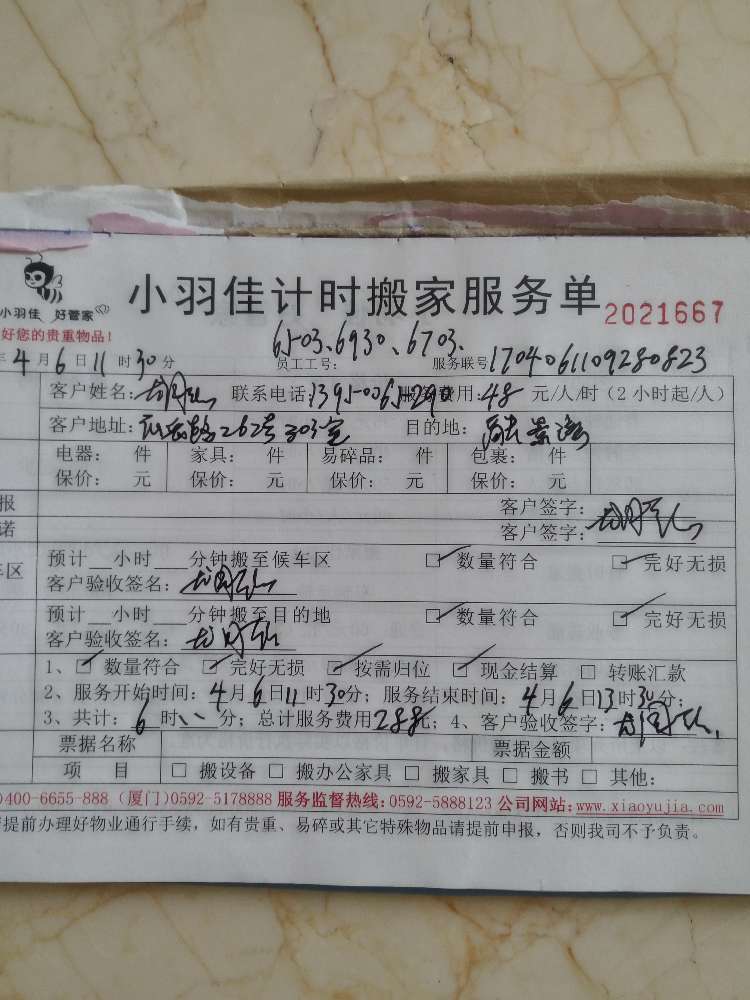 小羽佳 好管家
小羽佳计时搬家服务单 2021667
好您的贵重物品!
6503、6930、6703、
年4月6日11时30分 员工工号: 服务联号1704061109280823
客户姓名: 联系电话: 费用:48 元/人/时(2小时起/人)
客户地址: 262号303室 目的地:
电器: 件 家具: 件 易碎品: 件 包裹: 件
保价: 元 保价: 元 保价: 元 保价: 元
报 客户签字:
诺 客户签字:
预计__小时___分钟搬至候车区 □ 数量符合 □ 完好无损
车区 客户验收签名:
预计__小时___分钟搬至目的地 □ 数量符合 □ 完好无损
客户验收签名:
1、□ 数量符合 □ 完好无损 □ 按需归位 □ 现金结算 □ 转账汇款
2、服务开始时间:4月6日11时30分;服务结束时间:4月6日13时30分;
3、共计:6时 分;总计服务费用288元;4、客户验收签字:
票据名称 票据金额
项 目 □ 搬设备 □ 搬办公家具 □ 搬家具 □ 搬书 □ 其他:
)400-6655-888 (厦门)0592-5178888 服务监督热线:0592-5888123 公司网站:www.xiaoyujia.com
提前办理好物业通行手续,如有贵重、易碎或其它特殊物品请提前申报,否则我司不予负责。